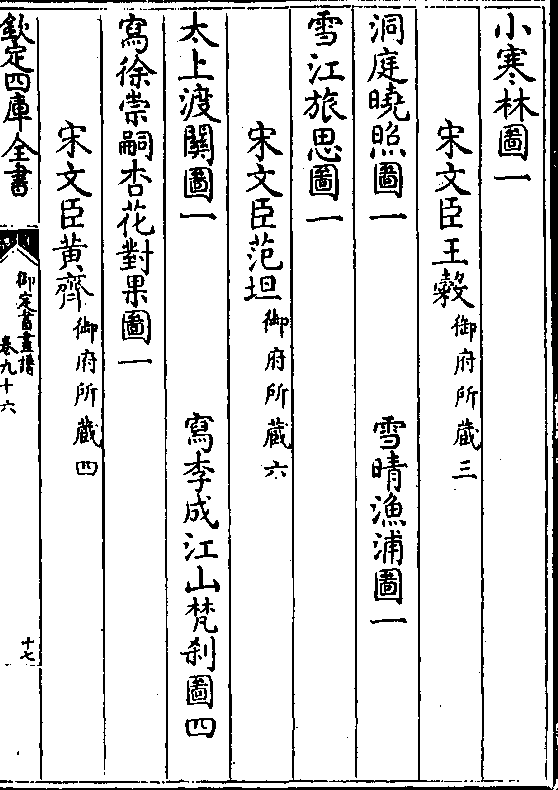 小寒林圖一
宋文臣王穀御府所藏三
洞庭曉照圖一　雪晴漁浦圖一
雪江旅思圖一
宋文臣范坦御府所藏六
太上渡關圖一　寫李成江山梵刹圖四
寫徐崇嗣杏花對果圖一
宋文臣黃齊御府所藏四
欽定四庫全書
御定書畫譜
卷九十六
十七